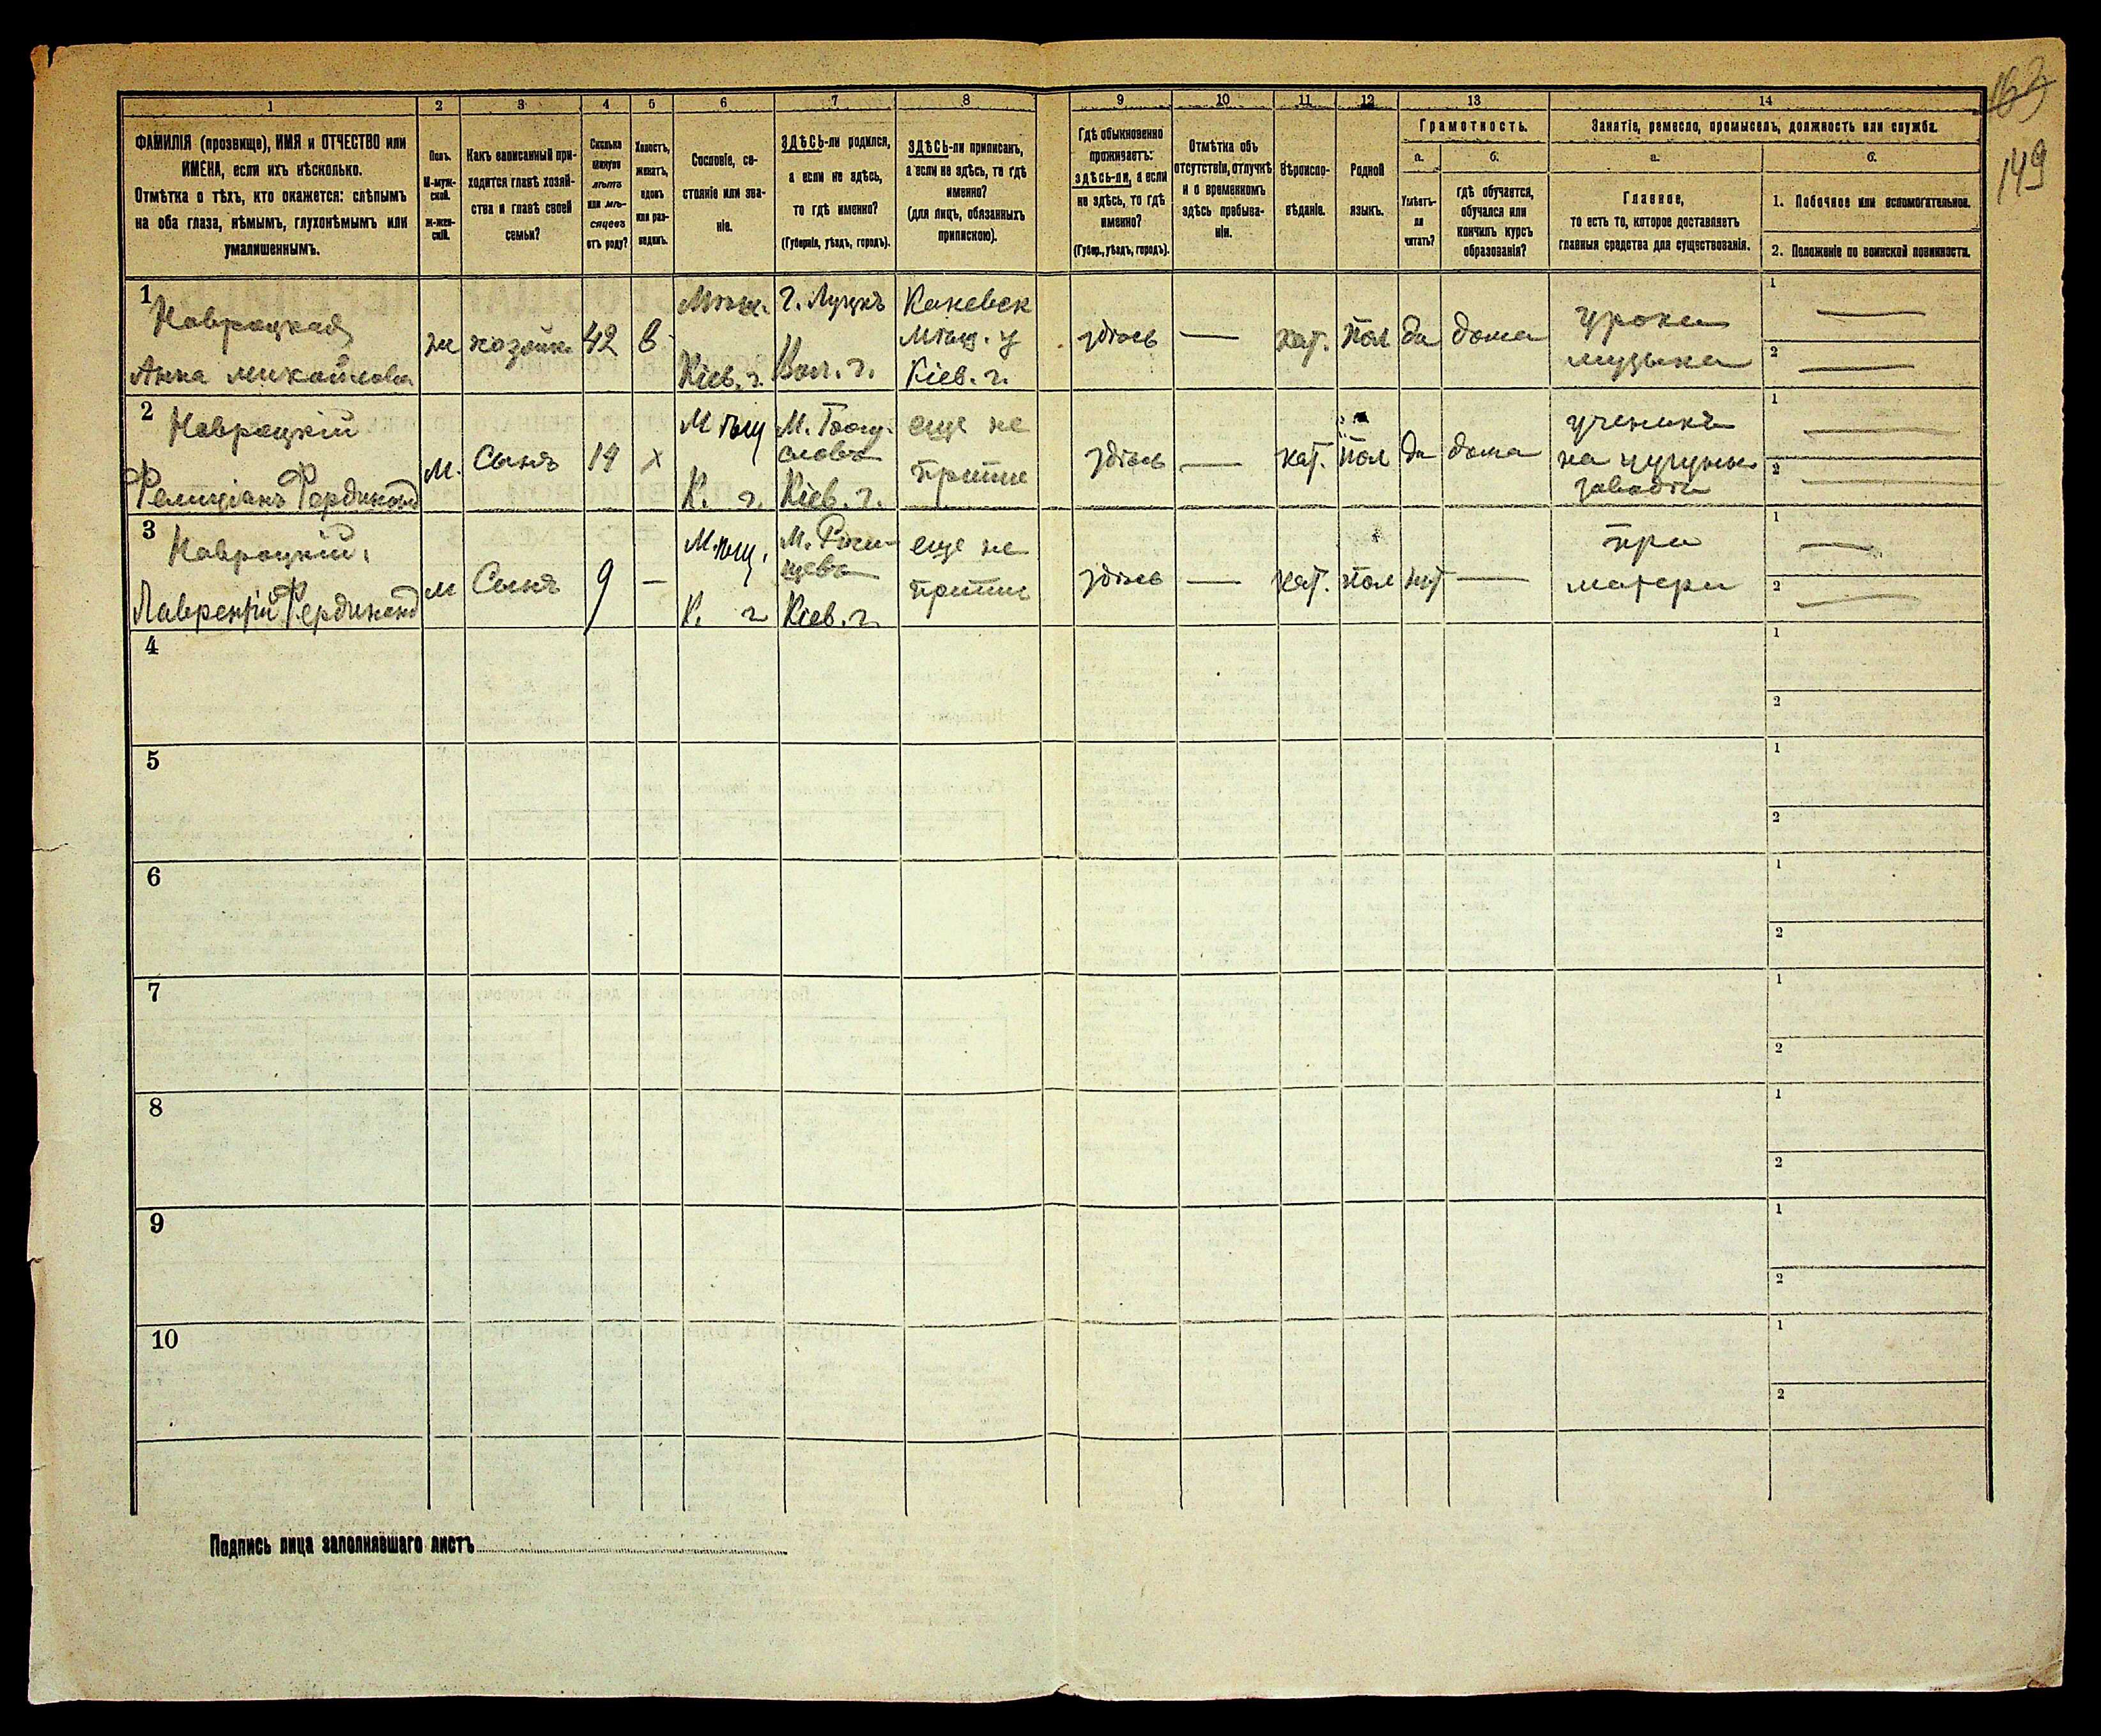 1 2 3 4 5 6 7 8 9 10 11 12 13 14
ФАМИЛІЯ (прозвище), ИМЯ и ОТЧЕСТВО или
ИМЕНА, если ихъ нѣсколько.
Отмѣтка о тѣхъ, кто окажется: слѣпымъ
на оба глаза, нѣмымъ, глухонѣмымъ или
умалишеннымъ.
Полъ.
М-муж-
ской.
ж-жен-
скій.
Какъ записанный при-
ходится главѣ хозяй-
ства и главѣ своей
семьи?
Сколько
минуло
лѣтъ
или мѣ-
сяцевъ
отъ роду?
Холостъ,
женатъ,
вдовъ
или раз-
веденъ.
Сословіе, со-
стояніе или зва-
ніе.
ЗДѢСЬ-ли родился,
а если не здѣсь,
то гдѣ именно?
(Губернія, уѣздъ, городъ).
ЗДѢСЬ-ли приписанъ,
а если не здѣсь, то гдѣ
именно?
(для лицъ, обязанныхъ
припискою).
Гдѣ обыкновенно
проживаетъ:
здѣсь-ли, а если
не здѣсь, то гдѣ
именно?
(Губер., уѣздъ, городъ).
Отмѣтка объ
отсутствіи, отлучкѣ
и о временномъ
здѣсь пребыва-
ніи.
Вѣроиспо-
вѣданіе.
Родной
языкъ.
Грамотность.
а.
Умѣетъ-
ли
читать?
б.
гдѣ обучается,
обучался или
кончилъ курсъ
образованія?
Занятіе, ремесло, промыселъ, должность или служба.
а.
Главное,
то есть то, которое доставляетъ
главныя средства для существованія.
б.
1. Побочное или вспомогательное.
2. Положеніе по воинской повинности.
149
1
Навроцкая
Анна
ж
хозяйк
42
в
Мѣщ.
Кіев. г.
г. Луцкъ
Вол. г.
Каневск
мѣщ. у
Кіев. г.
здѣсь
—
кат.
пол
да
дома
уроки
музыки
1 —
2 —
2
Навроцкій
Фелиціанъ Фердинанд
м.
Сынъ
х
Мѣщ
К. г.
Кіев. г.
еще не
припис
здѣсь
—
кат.
пол
да
дома
ученикъ
на чугунн
заводѣ
1 —
2 —
3
Навроцкій
Лаврентій Фердинанд
м
Сынъ
9
—
Мѣщ.
К. г
Кіев. г.
еще не
припис
здѣсь
—
кат.
пол
нѣт
—
при
матери
1 —
2 —
4
1
2
5
1
2
6
1
2
7
1
2
8
1
2
9
1
2
10
1
2
Подпись лица заполнявшаго листъ